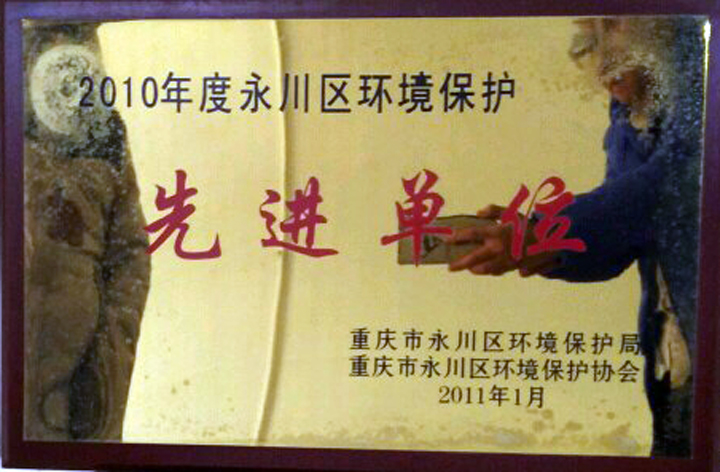 2010年度永川区环境保护
先进单位
重庆市永川区环境保护局
重庆市永川区环境保护协会
2011年1月